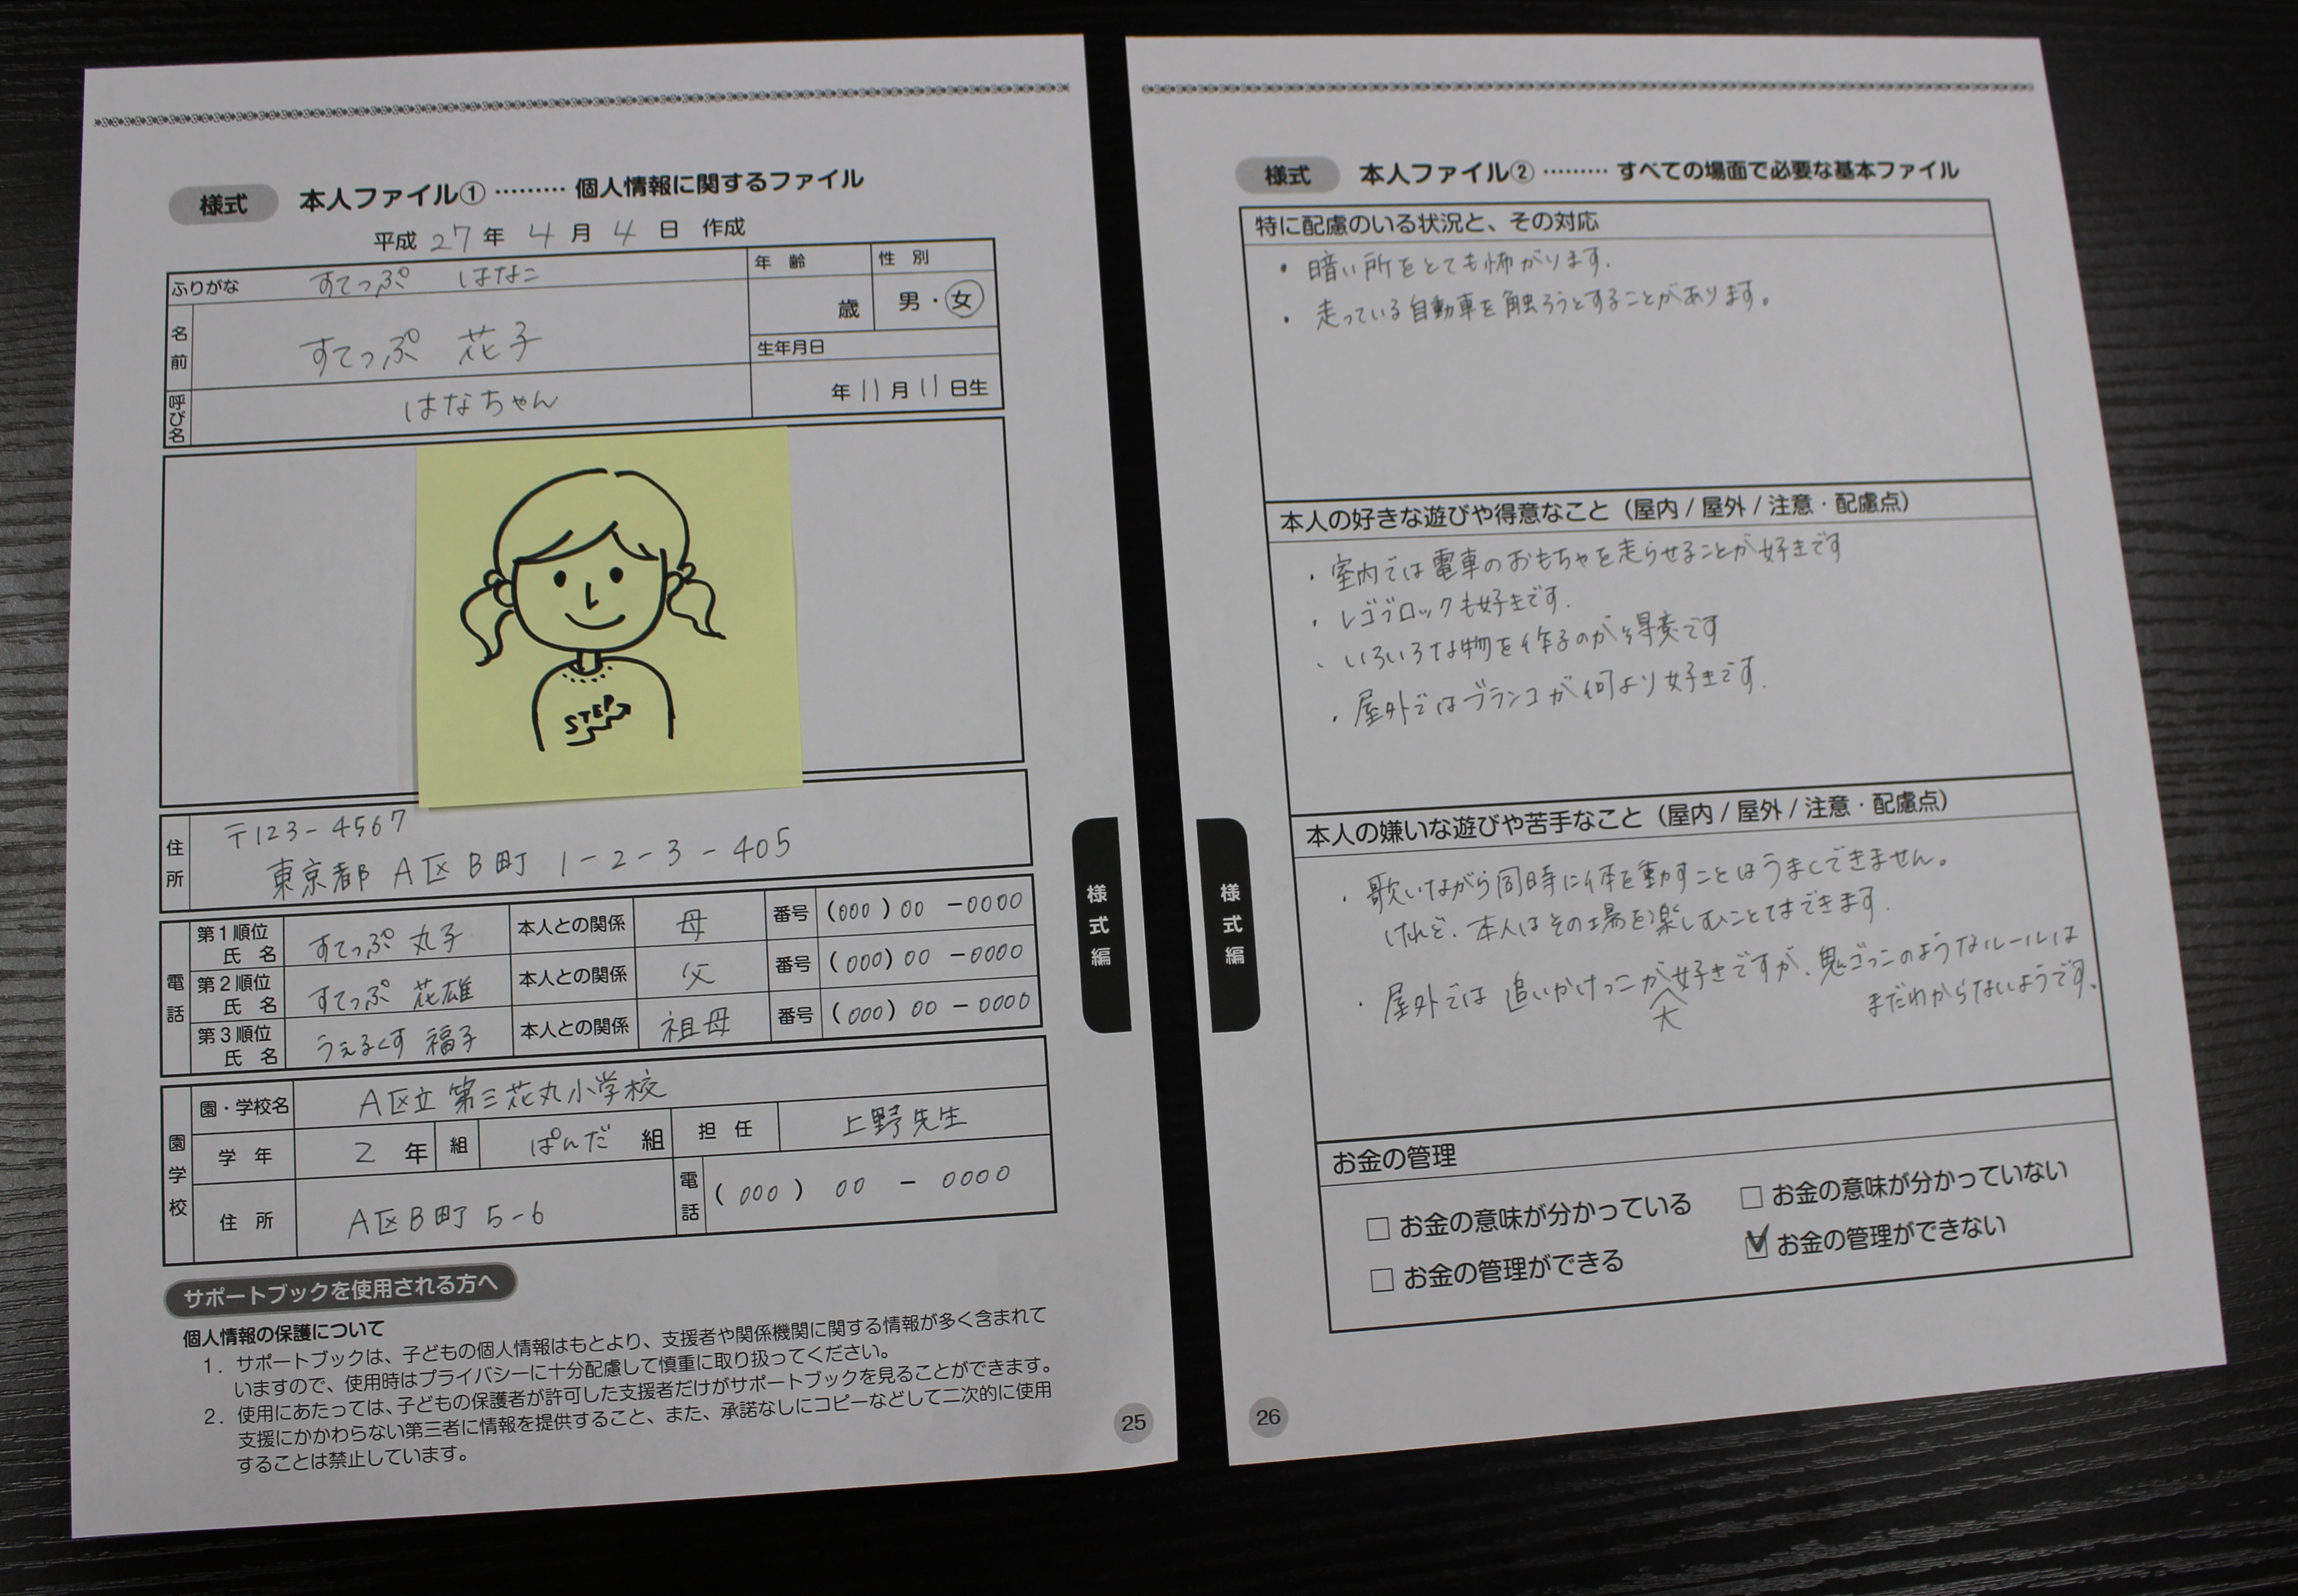 様式 本人ファイル① ……… 個人情報に関するファイル
平成 27 年 4 月 4 日 作成
ふりがな すてっぷ はなこ
年 齢
歳
性 別
男・女
名前 すてっぷ 花子
生年月日
年 11 月 11 日生
呼び名 はなちゃん
STEP
住所 〒123-4567
東京都 A区B町 1-2-3-405
電話
第1順位 氏 名 すてっぷ 丸子 本人との関係 母 番号 (000) 00 -0000
第2順位 氏 名 すてっぷ 花雄 本人との関係 父 番号 (000) 00 -0000
第3順位 氏 名 うぇるくす 福子 本人との関係 祖母 番号 (000) 00 -0000
園学校
園・学校名 A区立第三花丸小学校
学 年 2 年 組 ぱんだ 組 担 任 上野先生
住 所 A区B町 5-6 電話 (000) 00 - 0000
サポートブックを使用される方へ
個人情報の保護について
1．サポートブックは、子どもの個人情報はもとより、支援者や関係機関に関する情報が多く含まれて
いますので、使用時はプライバシーに十分配慮して慎重に取り扱ってください。
2．使用にあたっては、子どもの保護者が許可した支援者だけがサポートブックを見ることができます。
支援にかかわらない第三者に情報を提供すること、また、承諾なしにコピーなどして二次的に使用
することは禁止しています。
様式編
25
様式 本人ファイル② ……… すべての場面で必要な基本ファイル
特に配慮のいる状況と、その対応
・暗い所をとても怖がります.
・走っている自動車を触ろうとすることがあります。
本人の好きな遊びや得意なこと（屋内 / 屋外 / 注意・配慮点）
・室内では電車のおもちゃを走らせることが好きです
・レゴブロックも好きです.
、いろいろな物を作るのが得意です
・屋外ではブランコが何より好きです.
本人の嫌いな遊びや苦手なこと（屋内 / 屋外 / 注意・配慮点）
・歌いながら同時に体を動すことはうまくできません。
けれど、本人はその場を楽しむことはできます.
・屋外では 追いかけっこが大好きですが、鬼ごっこのようなルールは
まだわからないようです。
お金の管理
□ お金の意味が分かっている
□ お金の意味が分かっていない
□ お金の管理ができる
☑ お金の管理ができない
様式編
26